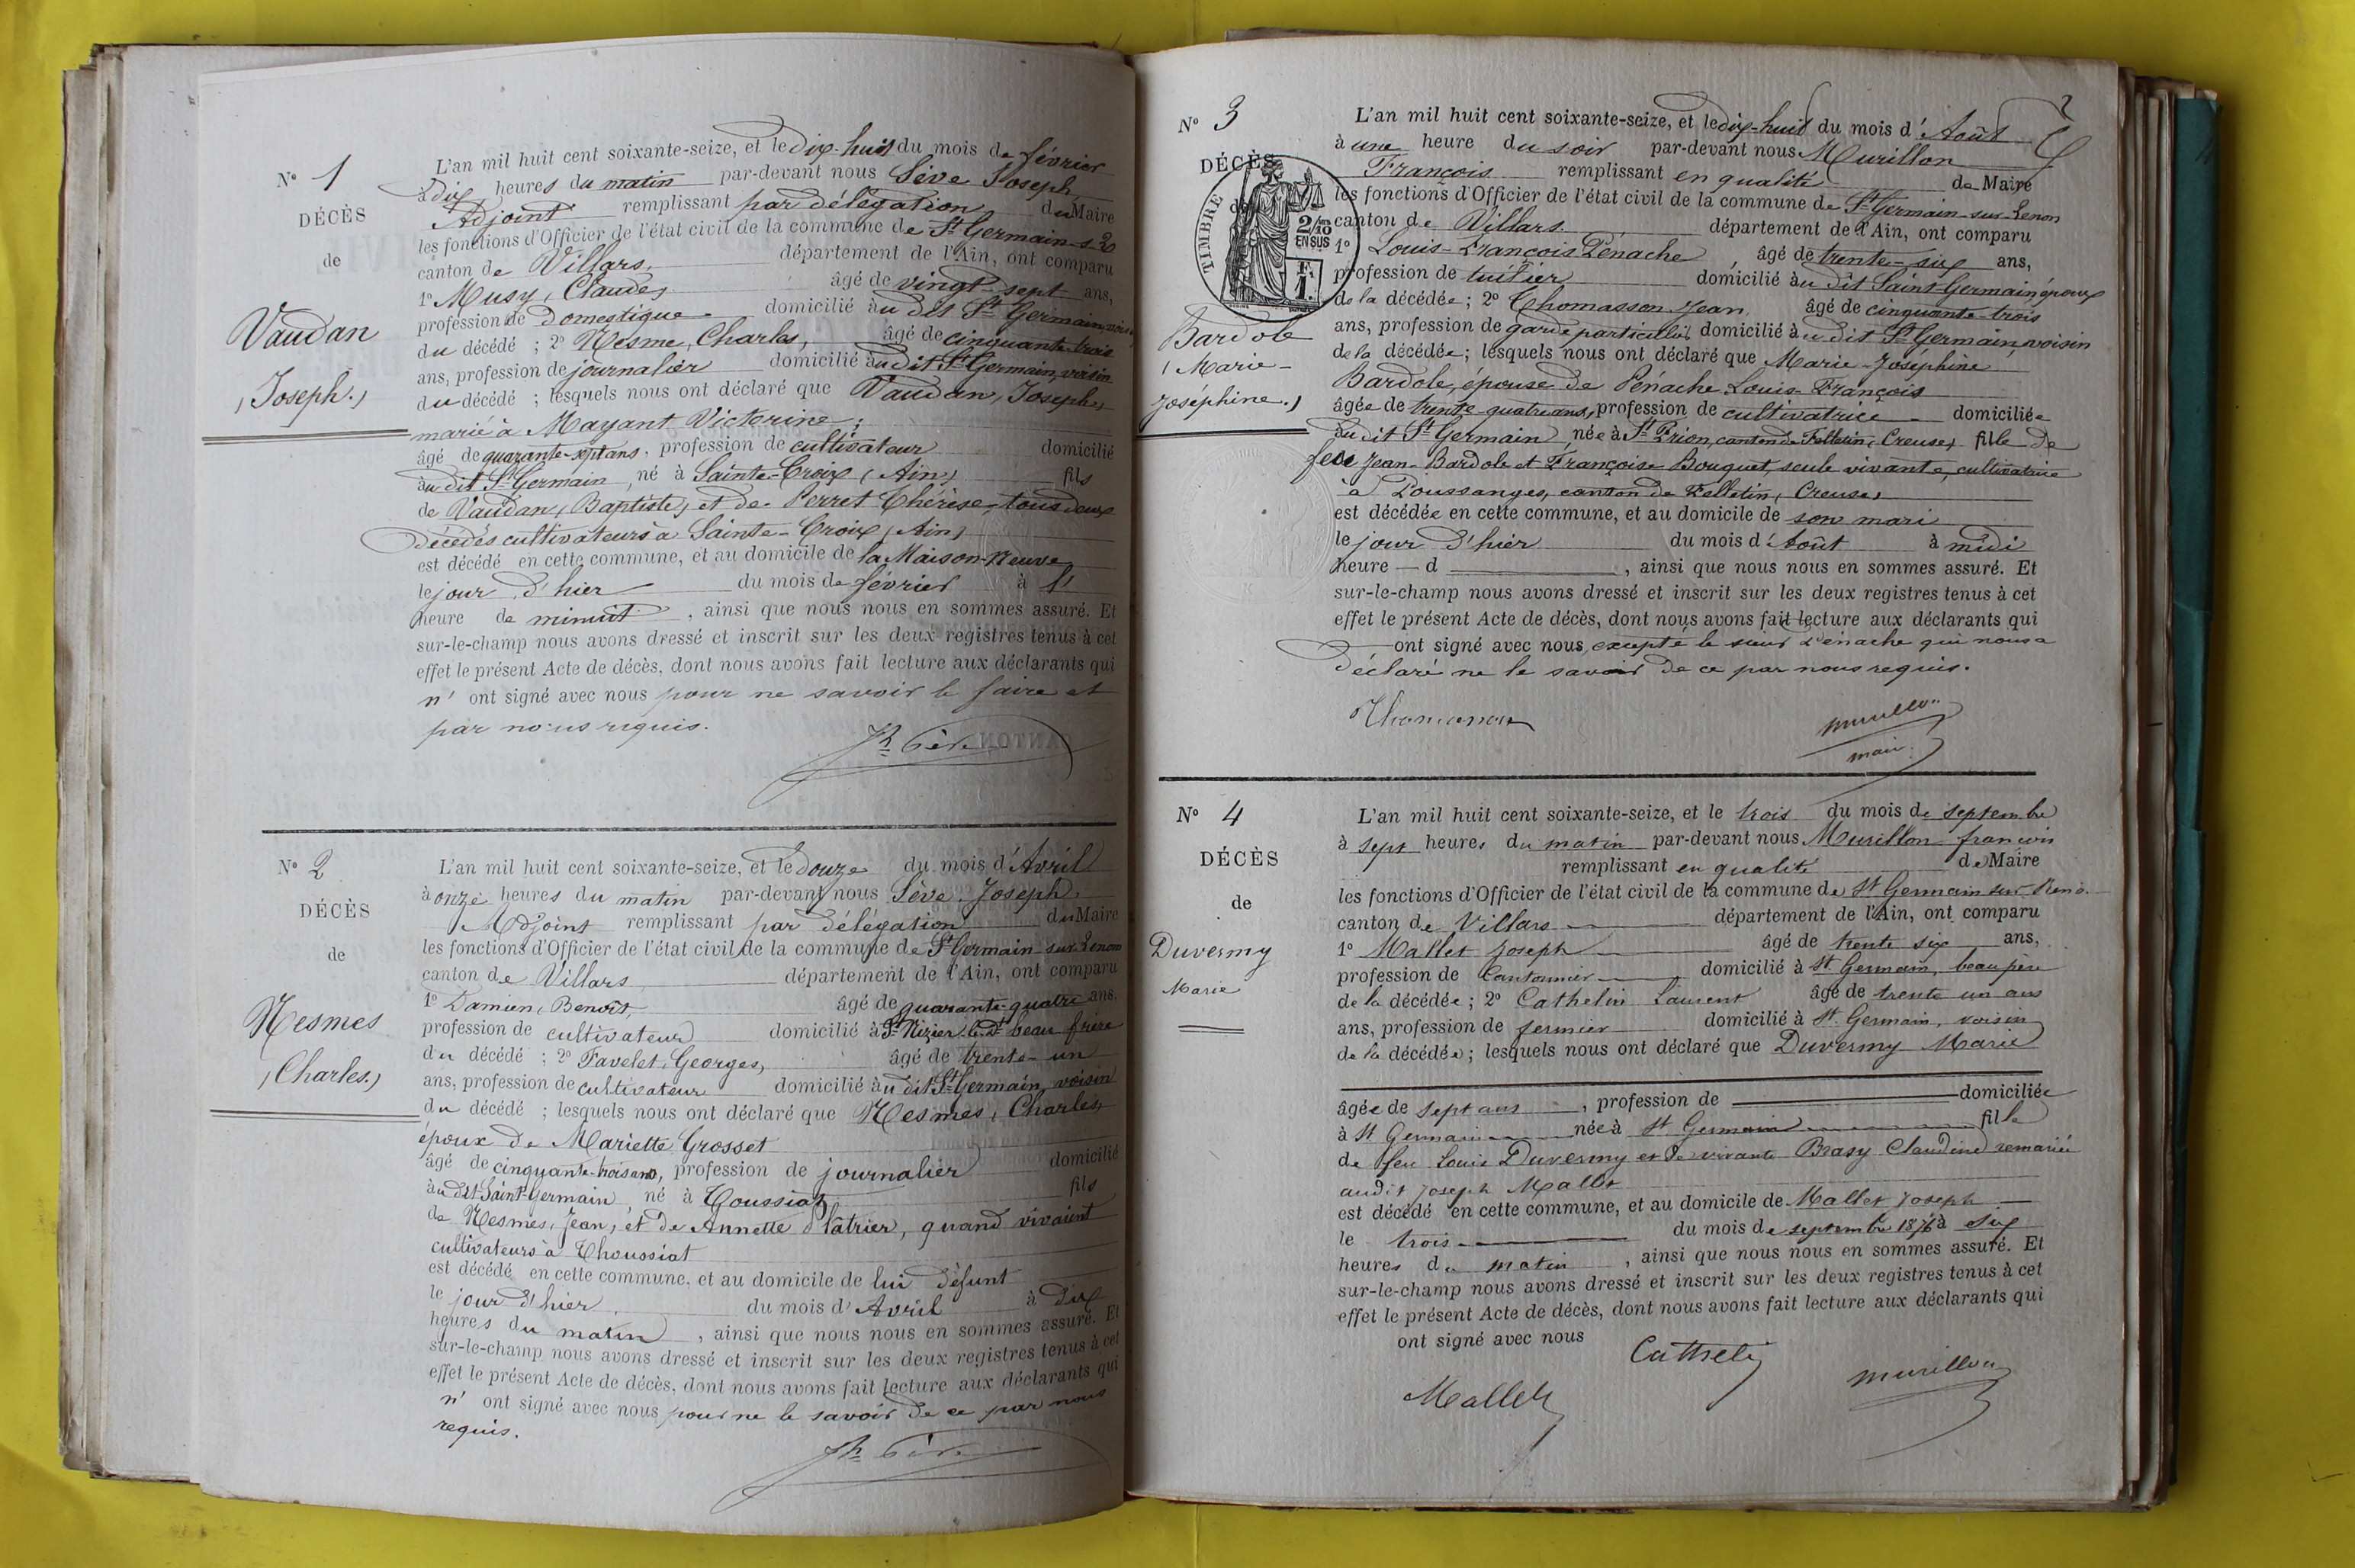 N° 1
DÉCÈS
de
Vaudan
(Joseph.)
L'an mil huit cent soixante-seize, et le dix-huit du mois de février
à dix heures du matin par-devant nous Sève Joseph,
Adjoint remplissant par délégation du Maire
les fonctions d'Officier de l'état civil de la commune de St Germain-s-
canton de Villars, département de l'Ain, ont comparu
1° Musy, Claude, âgé de vingt-sept ans,
profession de domestique domicilié àu dit St Germain, voisin
du décédé ; 2° Nesme, Charles, âgé de cinquante-trois
ans, profession de journalier domicilié àu dit St Germain, voisin
du décédé ; lesquels nous ont déclaré que Vaudan, Joseph,
marié à Mayant Victorine,
âgé de quarante-sept ans, profession de cultivateur domicilié
àu dit St Germain, né à Sainte-Croix (Ain) fils
de Vaudan, Baptiste, et de Perret Thérèse, tous deux
décédés cultivateurs à Sainte-Croix (Ain)
est décédé en cette commune, et au domicile de la Maison-Neuve
le jour d'hier du mois de février à
heure de minuit, ainsi que nous nous en sommes assuré. Et
sur-le-champ nous avons dressé et inscrit sur les deux registres tenus à cet
effet le présent Acte de décès, dont nous avons fait lecture aux déclarants qui
n' ont signé avec nous pour ne savoir le faire et
par nous requis.
Jh Sève
N° 2
DÉCÈS
de
Nesmes
(Charles.)
L'an mil huit cent soixante-seize, et le douze du mois d'Avril
à onze heures du matin par-devant nous Sève, Joseph,
Adjoint remplissant par délégation du Maire
les fonctions d'Officier de l'état civil de la commune de St Germain-sur-Renon
canton de Villars département de l'Ain, ont comparu
1° Damien, Benoît, âgé de quarante-quatre ans,
profession de cultivateur domicilié à St Nizier-le-Dt beau frère
du décédé ; 2° Favelet, Georges, âgé de trente-un
ans, profession de cultivateur domicilié àu dit St Germain, voisin
du décédé ; lesquels nous ont déclaré que Nesmes, Charles,
époux de Mariette Grosset
âgé de cinquante-trois ans, profession de journalier domicilié
àu dit Saint-Germain, né à Toussiat fils
de Nesmes, Jean, et de Annette quand vivaient
cultivateurs à Thoussiat
est décédé en cette commune, et au domicile de lui défunt
le jour d'hier, du mois d'Avril à dix
heures du matin, ainsi que nous nous en sommes assuré. Et
sur-le-champ nous avons dressé et inscrit sur les deux registres tenus à cet
effet le présent Acte de décès, dont nous avons fait lecture aux déclarants qui
n' ont signé avec nous pour ne le savoir de ce par nous
requis.
Jh Sève
2
N° 3
DÉCÈS
de
TIMBRE
2/10
EN SUS
Bardole
(Marie-
Joséphine.)
L'an mil huit cent soixante-seize, et le dix-huit du mois d'Août
à une heure du soir par-devant nous Murillon
François remplissant en qualité de Maire
les fonctions d'Officier de l'état civil de la commune de St Germain-sur-Renon
canton de Villars département de l'Ain, ont comparu
1° Louis-François Pénache, âgé de trente-six ans,
profession de tuilier domicilié àu dit Saint-Germain, époux
de la décédée ; 2° Thomasson Jean, âgé de cinquante-trois
ans, profession de garde particulier domicilié àu dit St Germain, voisin
de la décédée ; lesquels nous ont déclaré que Marie-Joséphine
Bardole, épouse de Pénache Louis-François
âgée de trente-quatre ans, profession de cultivatrice domiciliée
àu dit St Germain, née à St canton de Felletin, Creuse, fille de
feu Jean Bardole et Françoise Bouquet, seule vivante, cultivatrice
à Poussanges, canton de Felletin, Creuse,
est décédée en cette commune, et au domicile de son mari
le jour d'hier du mois d'Août à midi
heure d , ainsi que nous nous en sommes assuré. Et
sur-le-champ nous avons dressé et inscrit sur les deux registres tenus à cet
effet le présent Acte de décès, dont nous avons fait lecture aux déclarants qui
ont signé avec nous, excepté le sieur Pénache qui nous a
déclaré ne le savoir de ce par nous requis.
Thomasson
Murillon
maire
N° 4
DÉCÈS
de
Duvermy
Marie
L'an mil huit cent soixante-seize, et le trois du mois de septembre
à sept heures du matin par-devant nous Murillon françois
remplissant en qualité de Maire
les fonctions d'Officier de l'état civil de la commune de St Germain sur Renon
canton de Villars département de l'Ain, ont comparu
1° Mallet Joseph âgé de trente six ans,
profession de Cantonnier domicilié à St Germain, beau père
de la décédée ; 2° Cathelin Laurent âgé de trente un ans
ans, profession de fermier domicilié à St Germain, voisin
de la décédée ; lesquels nous ont déclaré que Duvermy Marie
âgée de sept ans, profession de domiciliée
à St Germain née à St Germain fille
de feu Louis Duvermy et de vivante Brasy Claudine remariée
audit Joseph Mallet
est décédé en cette commune, et au domicile de Mallet Joseph
le trois du mois de septembre 1876 à six
heures du matin, ainsi que nous nous en sommes assuré. Et
sur-le-champ nous avons dressé et inscrit sur les deux registres tenus à cet
effet le présent Acte de décès, dont nous avons fait lecture aux déclarants qui
ont signé avec nous
Cathelin
Mallet
Murillon